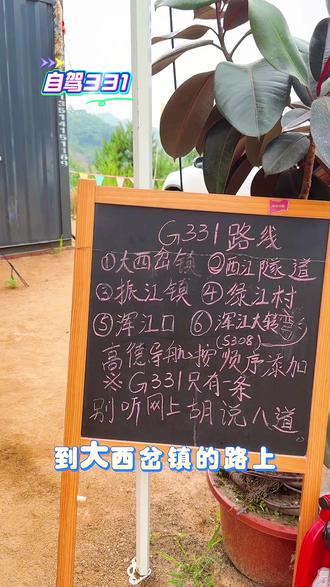 自驾331
13514151169
G331路线
①大西岔镇 ②西江隧道
③振江镇 ④绿江村
⑤浑江口 ⑥浑江大转弯
(S308)
高德导航按顺序添加
※G331只有一条
别听网上胡说八道
到大西岔镇的路上